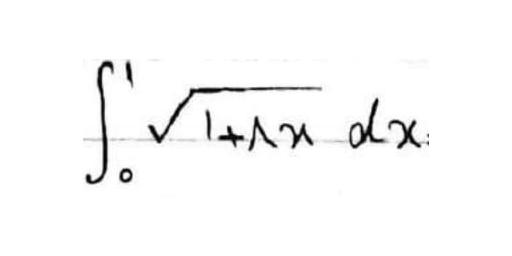 ∫₀¹ √(1+٨x) dx